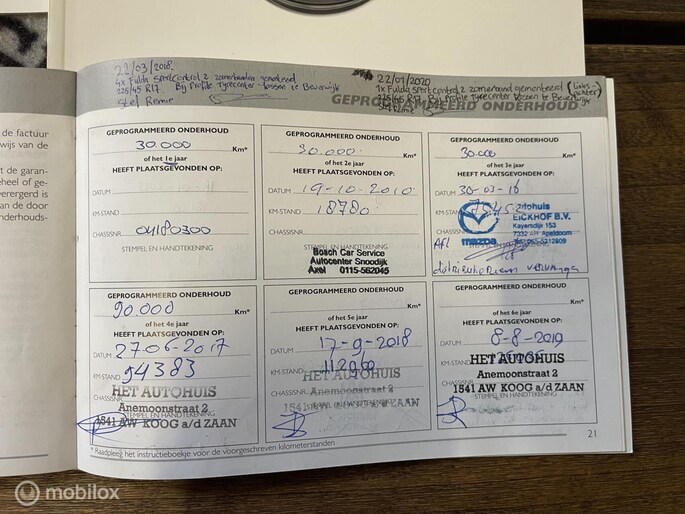 de factuur
wijs van de
t de garan-
eheel of ge-
verergerd is
an de door
nderhouds-
22/03/2018
4x Fulda Sportcontrol 2 zomerbanden gemonteerd
225/45 R17. Bij Profile Tyrecenter Vossen te Beverwijk
Stef Remie
22/01/2020
1x Fulda SportControl 2 zomerband gemonteerd (links-
achter)
225/45 R17. Bij Profile Tyrecenter Vossen te Beverwijk
Stef Remie
GEPROGRAMMEERD ONDERHOUD
GEPROGRAMMEERD ONDERHOUD
30.000 Km*
of het 1e jaar
HEEFT PLAATSGEVONDEN OP:
DATUM
KM-STAND
CHASSISNR. 04180300
STEMPEL EN HANDTEKENING
GEPROGRAMMEERD ONDERHOUD
30.000 Km*
of het 2e jaar
HEEFT PLAATSGEVONDEN OP:
DATUM 19-10-2010
KM-STAND 18780
CHASSISNR.
STEMPEL EN HANDTEKENING
Bosch Car Service
Autocenter Snoodijk
Axel 0115-562045
GEPROGRAMMEERD ONDERHOUD
30.000 Km*
of het 3e jaar
HEEFT PLAATSGEVONDEN OP:
DATUM 30-03-16
KM-STAND
Autohuis
EICKHOF B.V.
Kayersdijk 153
7332 AR Apeldoorn
mazda
GEPROGRAMMEERD ONDERHOUD
90.000 Km*
of het 4e jaar
HEEFT PLAATSGEVONDEN OP:
DATUM 27-06-2017
KM-STAND 94383
CHASSISNR.
HET AUTOHUIS
Anemoonstraat 2
STEMPEL EN HANDTEKENING
1541 AW KOOG a/d ZAAN
GEPROGRAMMEERD ONDERHOUD
Km*
of het 5e jaar
HEEFT PLAATSGEVONDEN OP:
DATUM 17-9-2018
KM-STAND 112060
CHASSISNR.
HET AUTOHUIS
Anemoonstraat 2
STEMPEL EN HANDTEKENING
1541 AW KOOG a/d ZAAN
GEPROGRAMMEERD ONDERHOUD
Km*
of het 6e jaar
HEEFT PLAATSGEVONDEN OP:
DATUM 8-8-2019
KM-STAND
HET AUTOHUIS
CHASSISNR.
Anemoonstraat 2
1541 AW KOOG a/d ZAAN
* Raadpleeg het instructieboekje voor de voorgeschreven kilometerstanden
21
mobilox